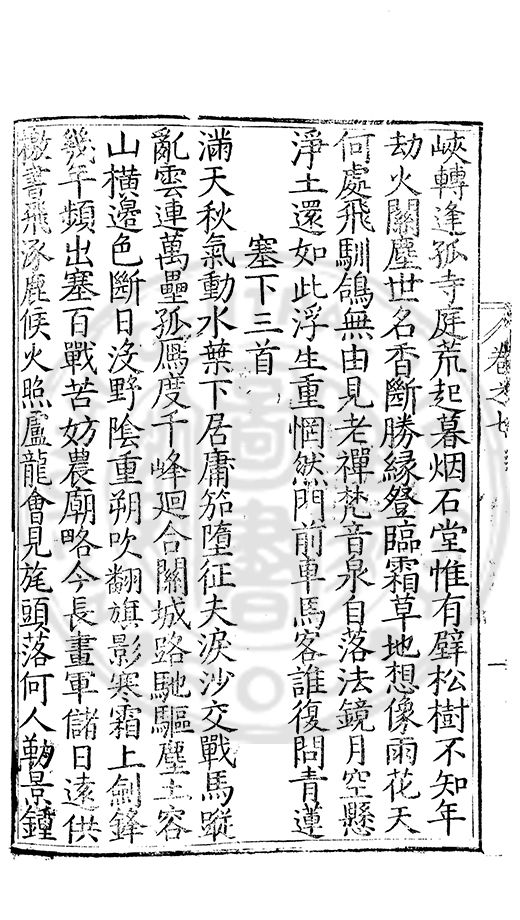 峽轉逢孤寺庭荒起暮烟石堂惟有壁松樹不知年
劫火關塵世名香斷勝緣登臨霜草地想像雨花天
何處飛馴鴿無由見老禪梵音泉自落法鏡月空懸
淨土還如此浮生重惘然門前車馬客誰復問青蓮
塞下三首
滿天秋氣動水葉下居庸笳墮征夫淚沙交戰馬蹤
亂雲連萬壘孤鴈度千峰迴合關城路馳驅塵土容
山橫邊色斷日沒野陰重朔吹翻旗影寒霜上劍鋒
幾年頻出塞百戰苦妨農廟略今長畫軍儲日遠供
檄書飛涿鹿候火照盧龍會見旄頭落何人勒景鐘
卷之七